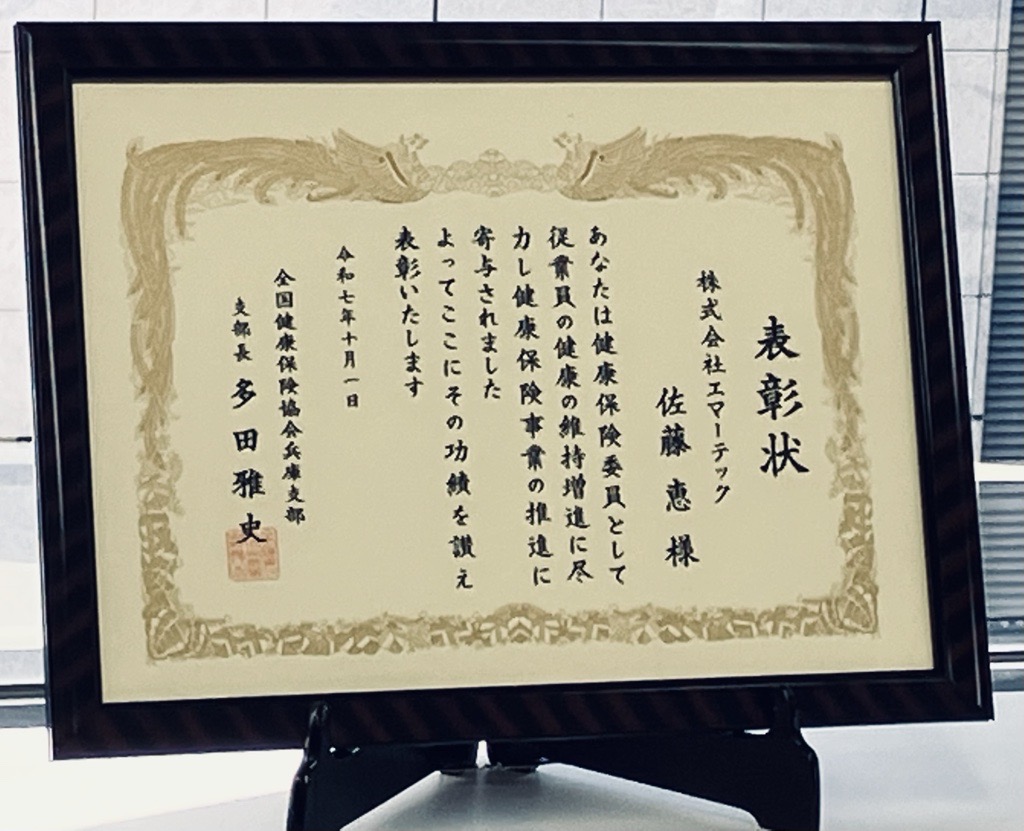 表彰状
株式会社エマーテック
佐藤恵様
あなたは健康保険委員として
従業員の健康の維持増進に尽
力し健康保険事業の推進に
寄与されました
よってここにその功績を讃え
表彰いたします
令和七年十月一日
全国健康保険協会兵庫支部
支部長 多田雅史